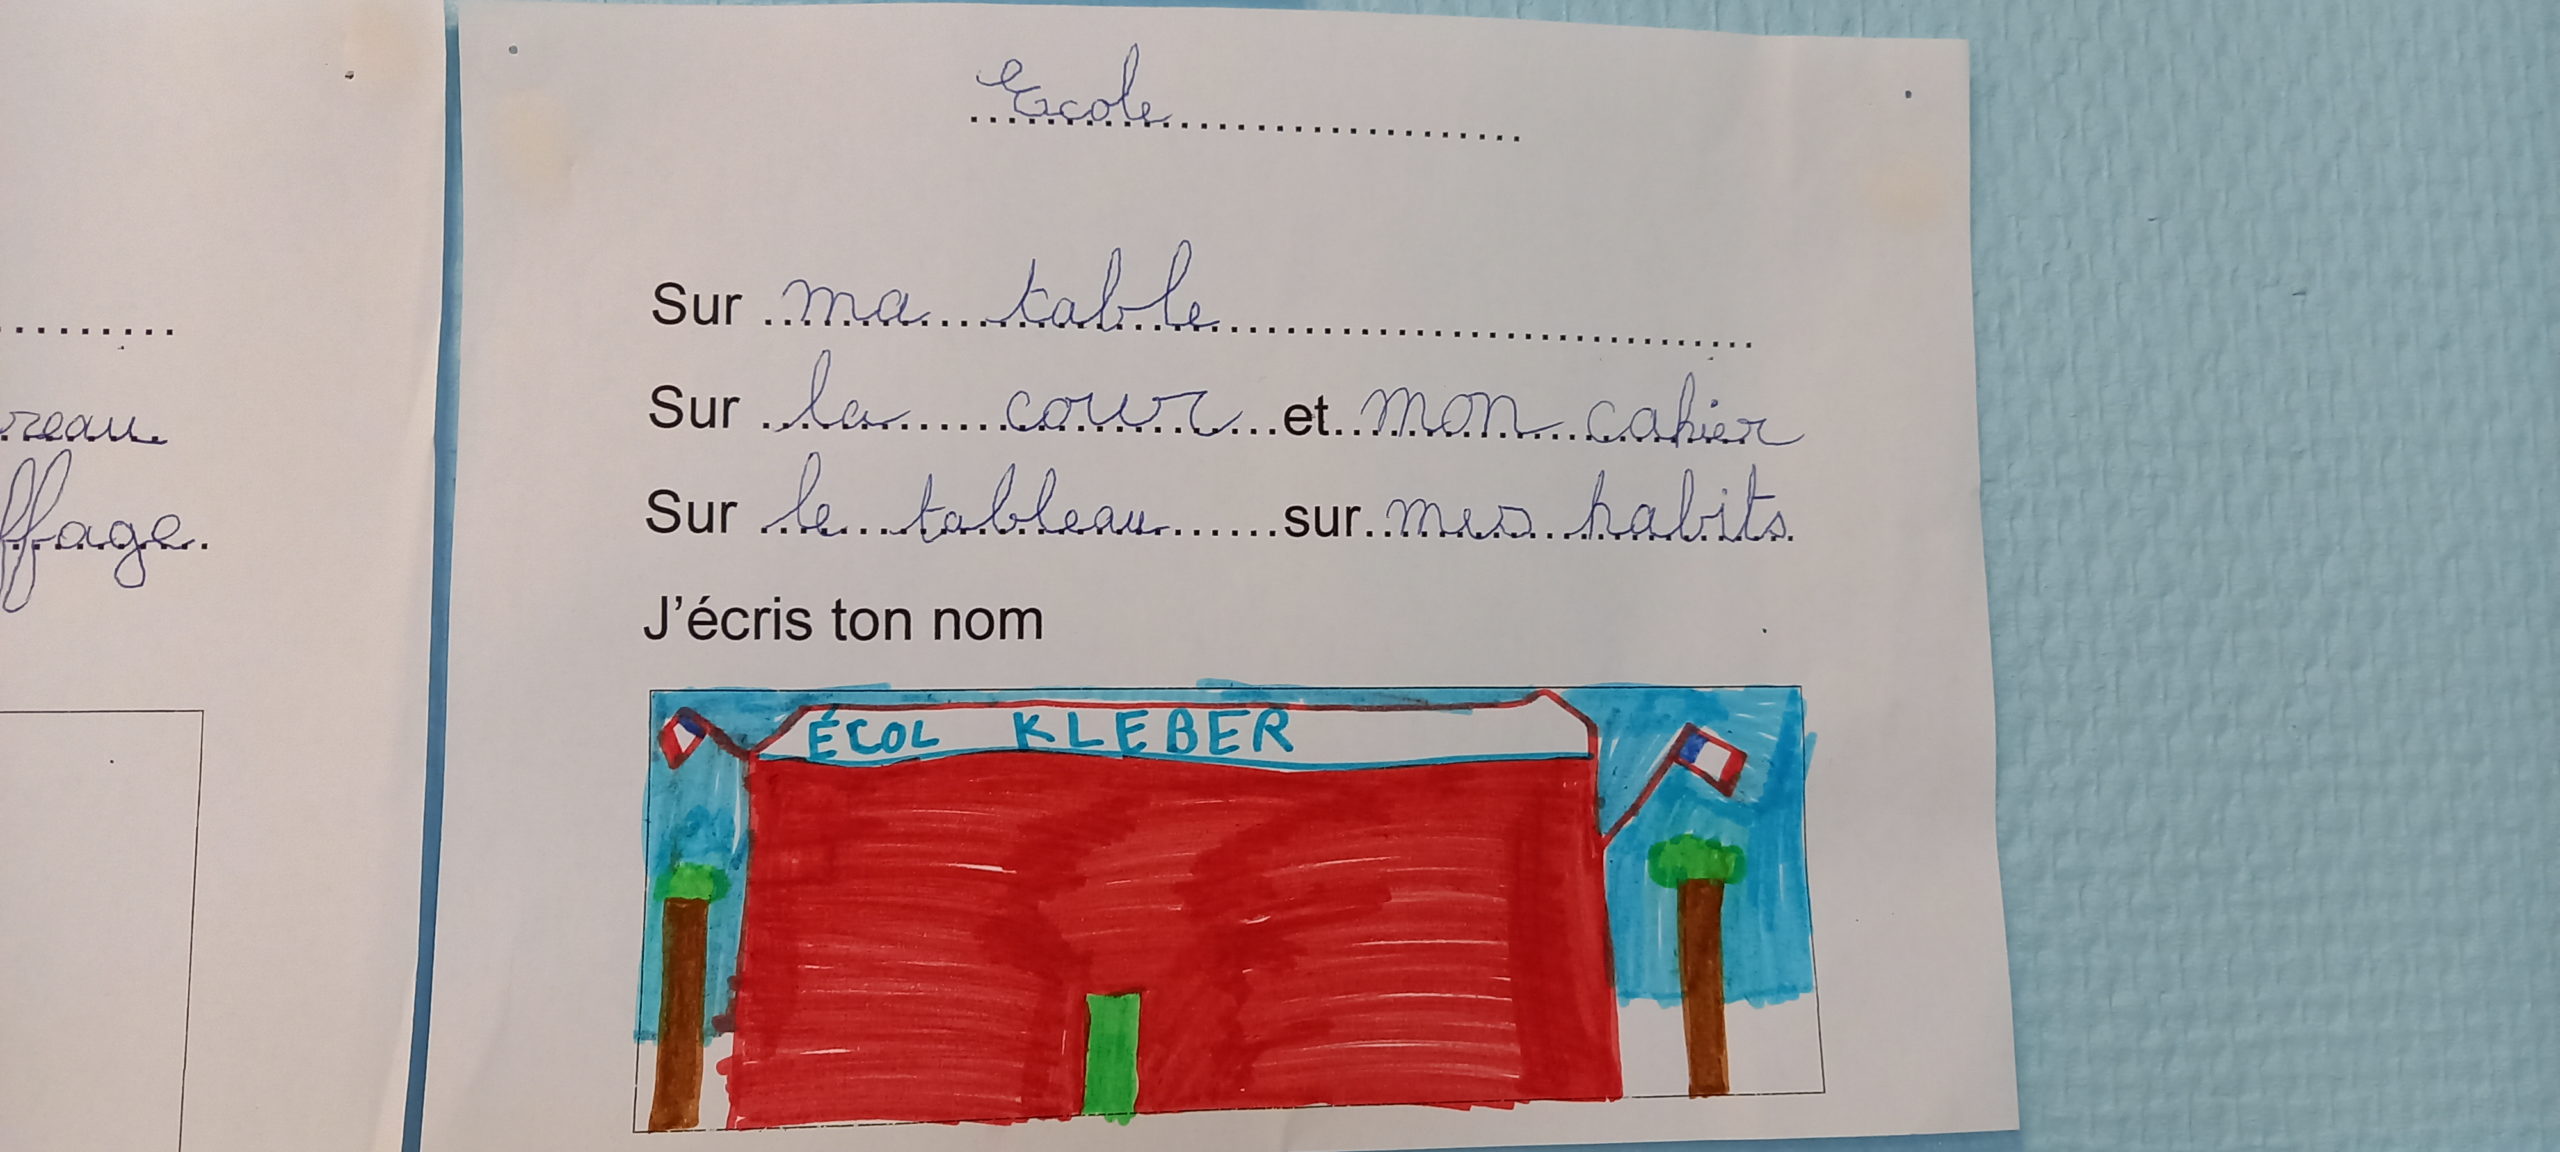 reau
ffage.
Ecole
Sur ma table
Sur la cour et mon cahier
Sur le tableau sur mes habits.
J'écris ton nom
ÉCOL KLEBER